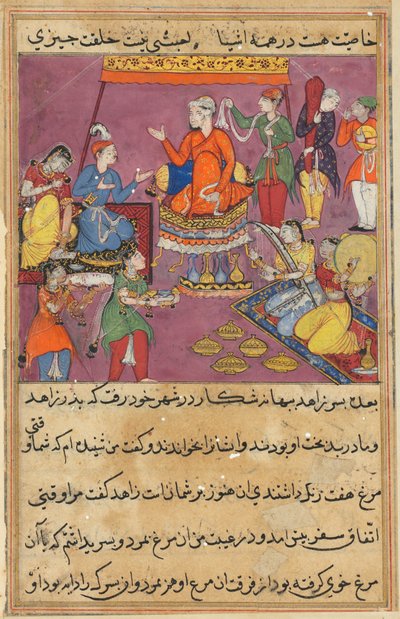 خاصیت هست در همه اشیا لعبثی نیست خلقت چیزی
بعده پسر زاهد بهانه شکار در شهر خود رفت که پدر زاهد
و مادر بدبخت او بودند و ایشانرا بخواند و گفت من شنیده ام که شما وقتی
مرغ هفت رنگ داشتید آن هنوز بر شما است زاهد گفت مرا وقتی
اتفاق سفر پیش آمد و در غیبت من آن مرغ بمرد و پسری داشتم که با آن
مرغ خوی کرفته بود از فرقت آن مرغ او هم بمرد و